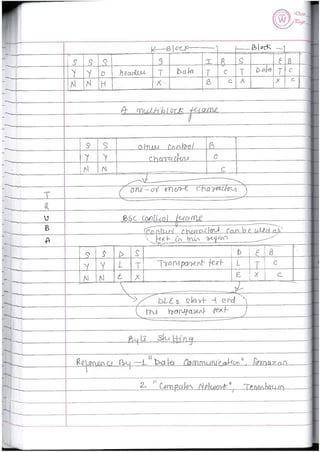 Block Block
S S S S I B S E B
Y Y O headers T Data T C T Data T C
N N H X B C X X C
A multiblock frame
S S other control B
Y Y characters C
N N C
one or more characters
T
R
U
B
A
BSC control frame
control characters can be used as
text in this region
S S D S D E B
Y Y L T Transparent text L T C
N N E X E X C
DLEs start & end
the transparent text
Byte stuffing
Reference By - 1. "Data Communication", Forouzan
2. "Computer Network", Tenenbaum